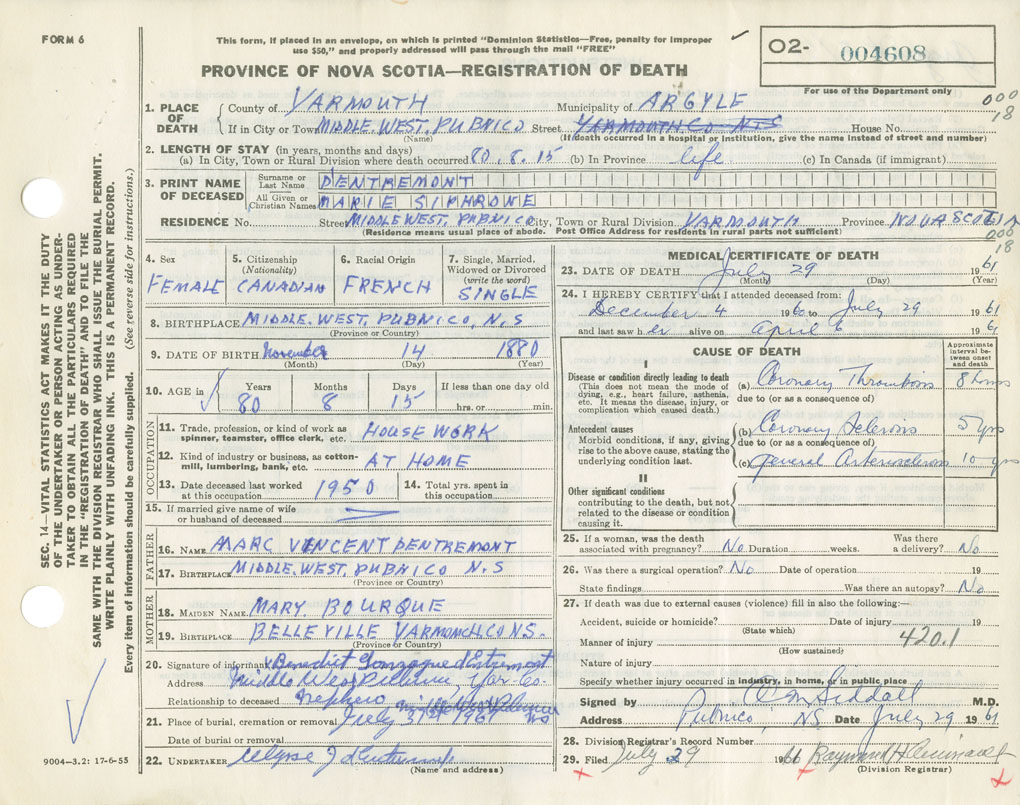 FORM 6
This form, if placed in an envelope, on which is printed "Dominion Statistics—Free, penalty for improper
use $50," and properly addressed will pass through the mail "FREE"
O2- 004608
For use of the Department only
PROVINCE OF NOVA SCOTIA—REGISTRATION OF DEATH
000
18
1. PLACE OF DEATH
County of YARMOUTH Municipality of ARGYLE
If in City or Town MIDDLE.WEST.PUBNICO Street YARMOUTH.CO N.S House No.
(Name) (If death occurred in a hospital or institution, give the name instead of street and number)
2. LENGTH OF STAY (in years, months and days)
(a) In City, Town or Rural Division where death occurred 80.8.15 (b) In Province life (c) In Canada (if immigrant)
3. PRINT NAME OF DECEASED
Surname or Last Name DENTREMONT
All Given or Christian Names MARIE SIPHRONE
RESIDENCE No. Street MIDDLE WEST, PUBNICO City, Town or Rural Division YARMOUTH Province NOVA SCOTIA
(Residence means usual place of abode. Post Office Address for residents in rural parts not sufficient)
000
18
4. Sex FEMALE
5. Citizenship (Nationality) CANADIAN
6. Racial Origin FRENCH
7. Single, Married, Widowed or Divorced (write the word) SINGLE
8. BIRTHPLACE MIDDLE.WEST, PUBNICO, N,S
(Province or Country)
9. DATE OF BIRTH November 14 1880
(Month) (Day) (Year)
10. AGE in Years Months Days If less than one day old
80 8 15 hrs. or min.
OCCUPATION
11. Trade, profession, or kind of work as spinner, teamster, office clerk, etc. HOUSE WORK
12. Kind of industry or business, as cotton-mill, lumbering, bank, etc. AT HOME
13. Date deceased last worked at this occupation 1950
14. Total yrs. spent in this occupation
15. If married give name of wife or husband of deceased
FATHER
16. NAME MARC VINCENT DENTREMONT
17. BIRTHPLACE MIDDLE.WEST, PUBNICO N.S
(Province or Country)
MOTHER
18. MAIDEN NAME MARY BOURQUE
19. BIRTHPLACE BELLEVILLE YARMOUCH CO NS.
(Province or Country)
20. Signature of informant Benedict Gonzague d'Entremont
Address Middle West Pubnico Yar. Co.
Relationship to deceased nephew
21. Place of burial, cremation or removal July 31st 1961 NS
Date of burial or removal
22. UNDERTAKER Ulysse J d'Entremont
(Name and address)
MEDICAL CERTIFICATE OF DEATH
23. DATE OF DEATH July 29 1961
(Month) (Day) (Year)
24. I HEREBY CERTIFY that I attended deceased from:
December 4 1960 to July 29 1961
and last saw her alive on April 6 1961
CAUSE OF DEATH
Approximate interval between onset and death
I
Disease or condition directly leading to death
(This does not mean the mode of dying, e.g., heart failure, asthenia, etc. It means the disease, injury, or complication which caused death.)
(a) Coronary Thrombosis 8 hours
due to (or as a consequence of)
Antecedent causes
Morbid conditions, if any, giving rise to the above cause, stating the underlying condition last.
(b) Coronary Sclerosis 5 yrs
due to (or as a consequence of)
(c) general Arteriosclerosis 10 yrs
II
Other significant conditions
contributing to the death, but not related to the disease or condition causing it.
25. If a woman, was the death associated with pregnancy? No Duration weeks. Was there a delivery? No
26. Was there a surgical operation? No Date of operation 19
State findings Was there an autopsy? No
27. If death was due to external causes (violence) fill in also the following:—
Accident, suicide or homicide? Date of injury 19
(State which)
Manner of injury 420.1
(How sustained)
Nature of injury
Specify whether injury occurred in industry, in home, or in public place
Signed by Siddall M.D.
Address Pubnico, NS Date July 29 1961
28. Division Registrar's Record Number
29. Filed July 29 1961
(Division Registrar)
SEC. 14—VITAL STATISTICS ACT MAKES IT THE DUTY
OF THE UNDERTAKER OR PERSON ACTING AS UNDER-
TAKER TO OBTAIN ALL THE PARTICULARS REQUIRED
IN THE "REGISTRATION OF DEATH" AND TO FILE THE
SAME WITH THE DIVISION REGISTRAR WHO SHALL ISSUE THE BURIAL PERMIT.
WRITE PLAINLY WITH UNFADING INK. THIS IS A PERMANENT RECORD.
Every item of information should be carefully supplied. (See reverse side for instructions.)
9004-3.2: 17-6-55